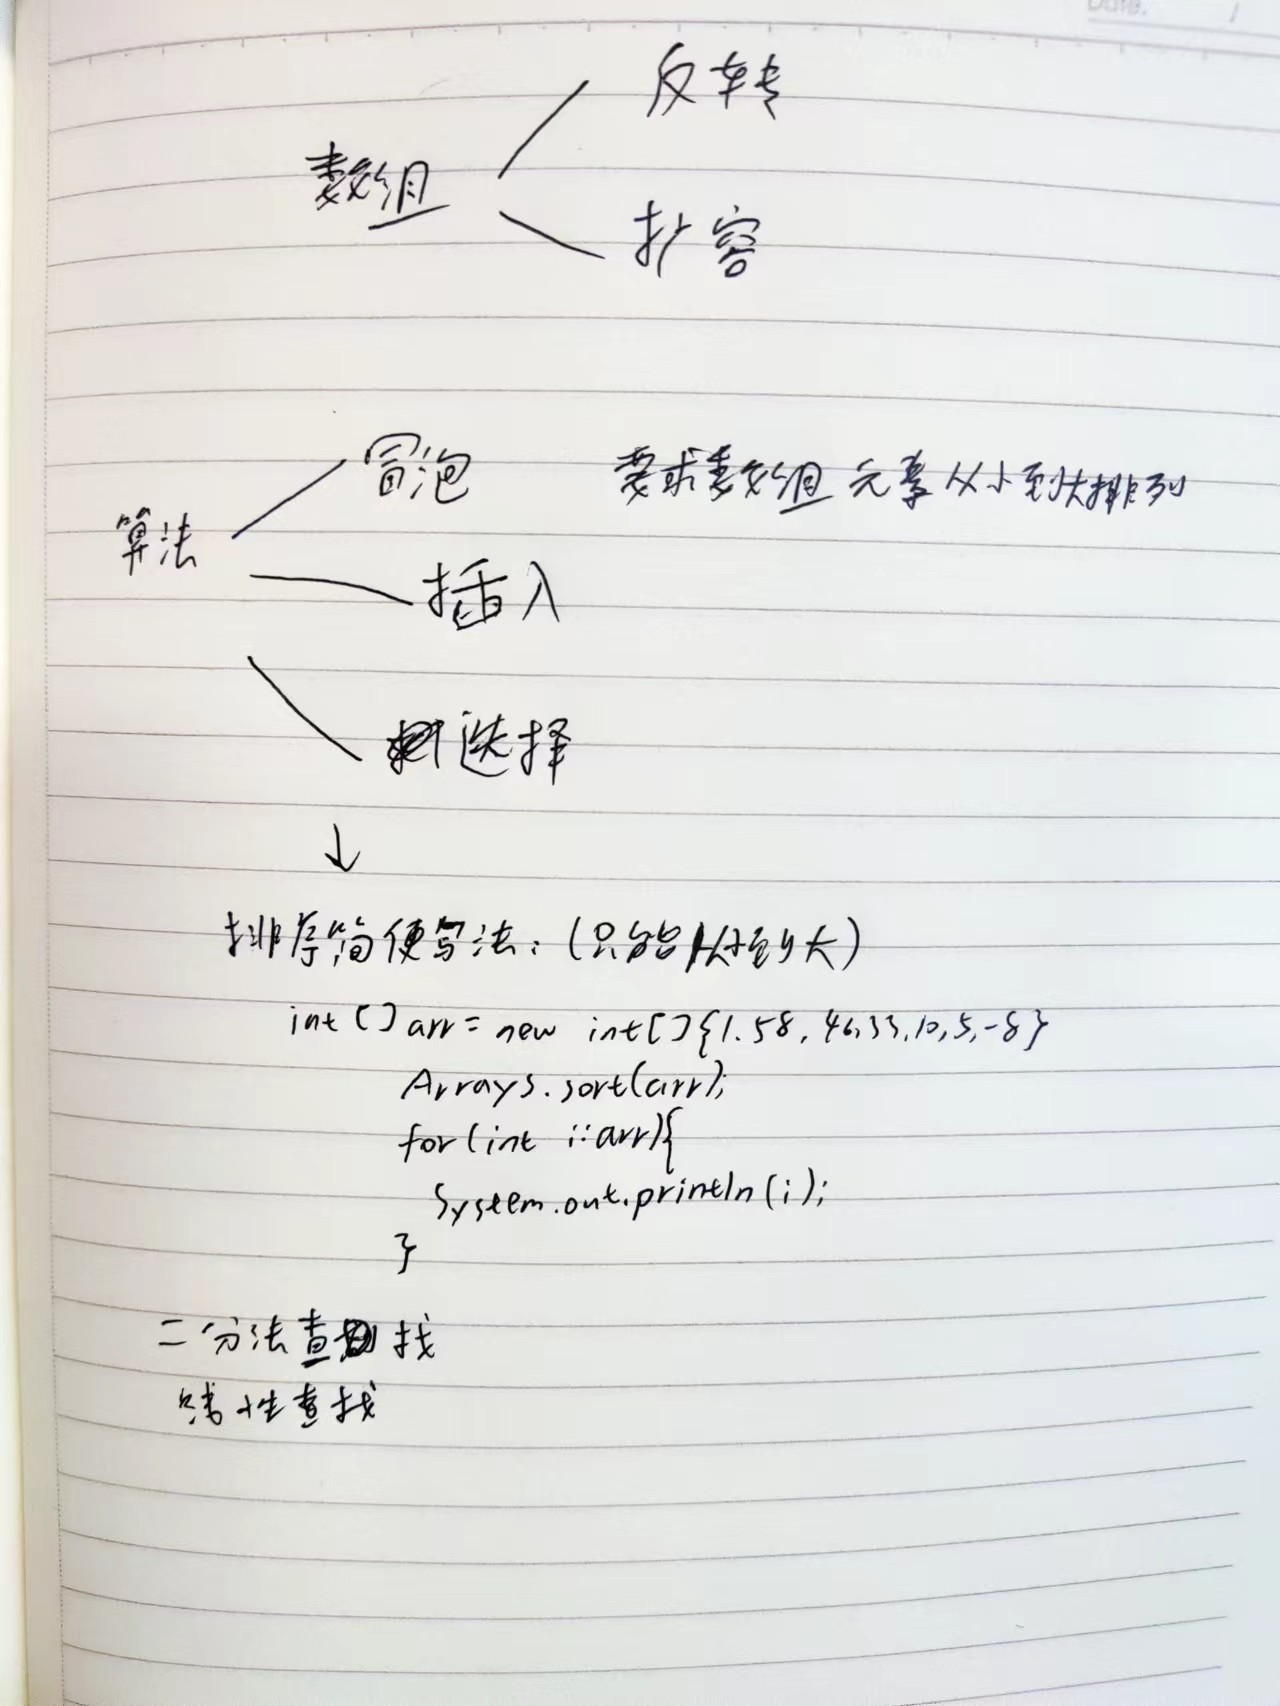 Date.
反转
数组
扩容
冒泡 要求数组元素从小到大排列
算法
插入
选择
排序简便写法：（只能从小到大）
int[] arr = new int[]{1.58, 46,33,10,5,-8}
Arrays.sort(arr);
for(int i:arr){
System.out.println(i);
}
二分法查找
线性查找